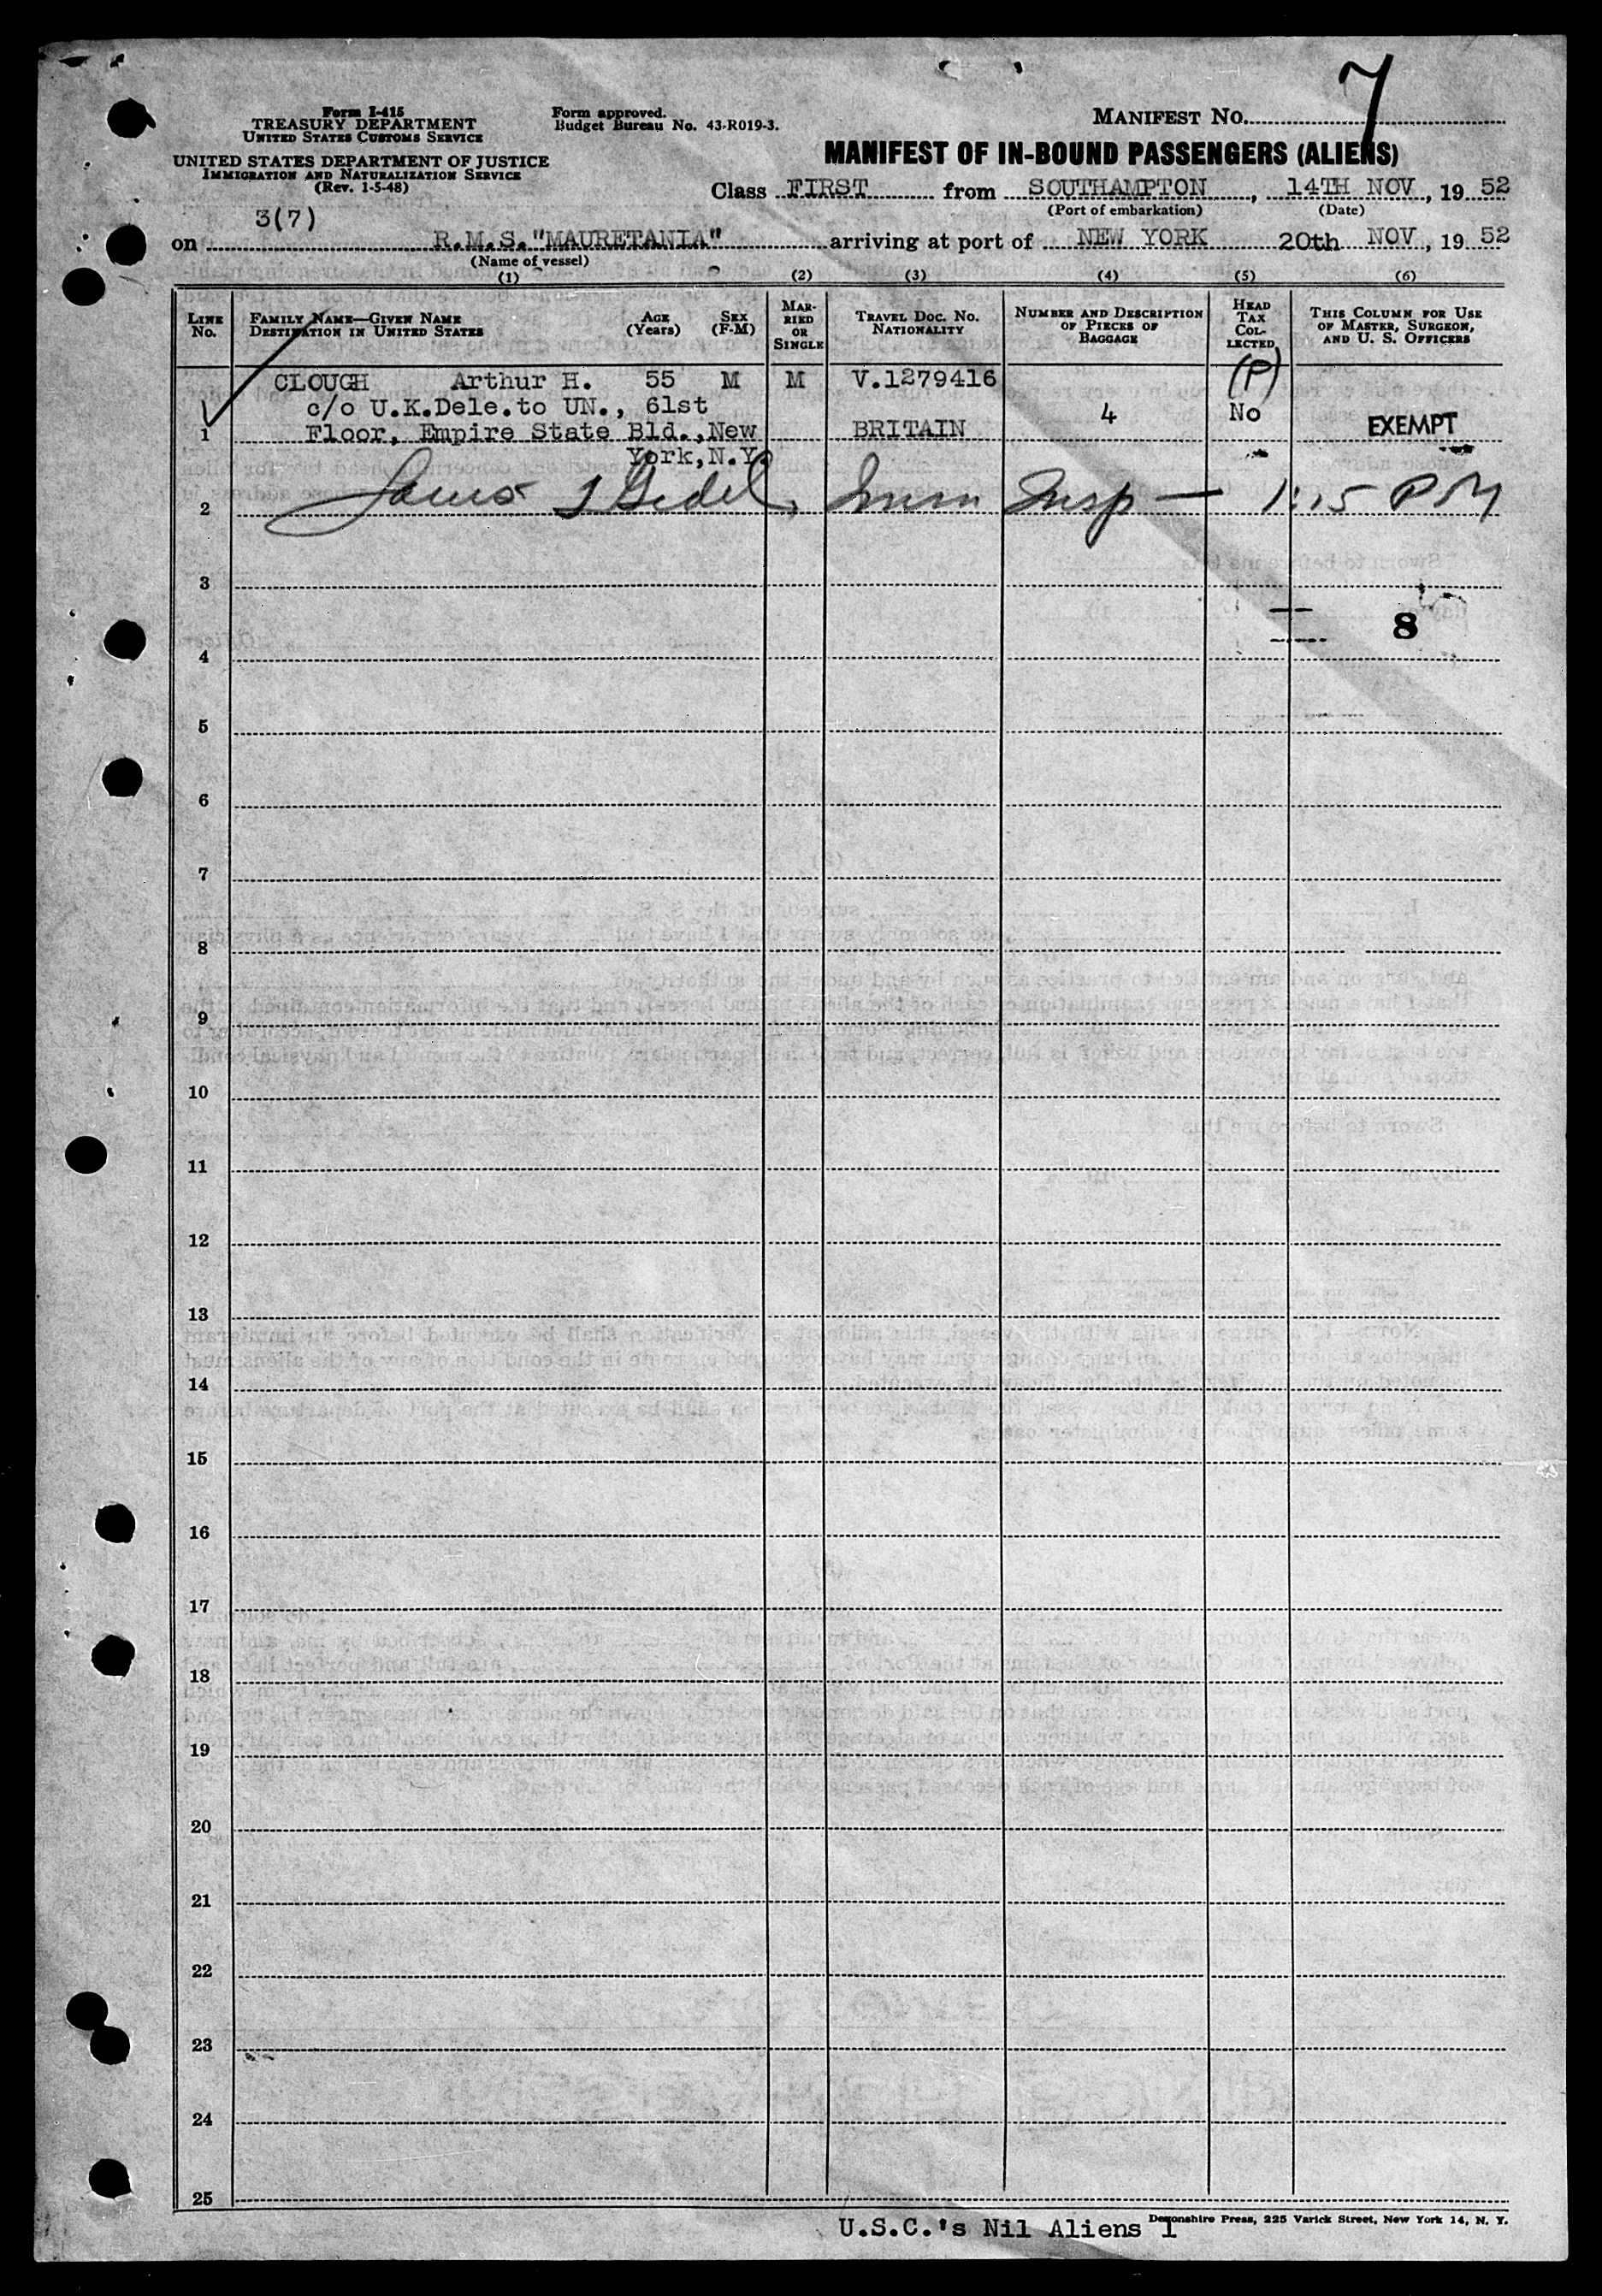 7
Form I-415
TREASURY DEPARTMENT
UNITED STATES CUSTOMS SERVICE
UNITED STATES DEPARTMENT OF JUSTICE
IMMIGRATION AND NATURALIZATION SERVICE
(Rev. 1-5-48)
Form approved.
Budget Bureau No. 43-R019-3.
MANIFEST NO.
MANIFEST OF IN-BOUND PASSENGERS (ALIENS)
Class FIRST from SOUTHAMPTON, 14TH NOV, 19 52
(Port of embarkation) (Date)
3(7)
on R.M.S."MAURETANIA" arriving at port of NEW YORK 20th NOV, 19 52
(Name of vessel)
(1) (2) (3) (4) (5) (6)
LINE No. FAMILY NAME—GIVEN NAME DESTINATION IN UNITED STATES AGE (Years) SEX (F-M) MARRIED OR SINGLE TRAVEL DOC. NO. NATIONALITY NUMBER AND DESCRIPTION OF PIECES OF BAGGAGE HEAD TAX COLLECTED THIS COLUMN FOR USE OF MASTER, SURGEON, AND U. S. OFFICERS
(P)
CLOUGH Arthur H. 55 M M V.1279416
c/o U.K.Dele.to UN., 61st 4 No EXEMPT
1 Floor, Empire State Bld.,New BRITAIN
York,N.Y.
2 Imm Insp — 1:15 PM
3
8
4
5
6
7
8
9
10
11
12
13
14
15
16
17
18
19
20
21
22
23
24
25
U.S.C.'s Nil Aliens 1
Devonshire Press, 225 Varick Street, New York 14, N. Y.